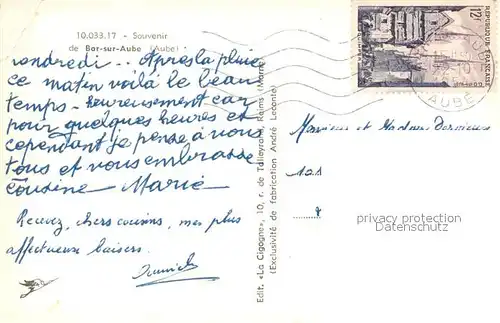 10.033.17 - Souvenir
de Bar-sur-Aube (Aube)
vendredi... Après la pluie
ce matin voilà le beau
temps - heureusement car
pour quelques heures et
cependant je pense à vous
tous et vous embrasse
cousine Marie
Recevez, chers cousins, mes plus
affectueux baisers.
Edit. «La Cigogne», 10, r. de Talleyrand, Reims (Marne)
(Exclusivité de fabrication André Leconte)
12F
REPUBLIQUE FRANÇAISE
QUIMPER
AUBE
Monsieur et Madame
101
privacy protection
Datenschutz